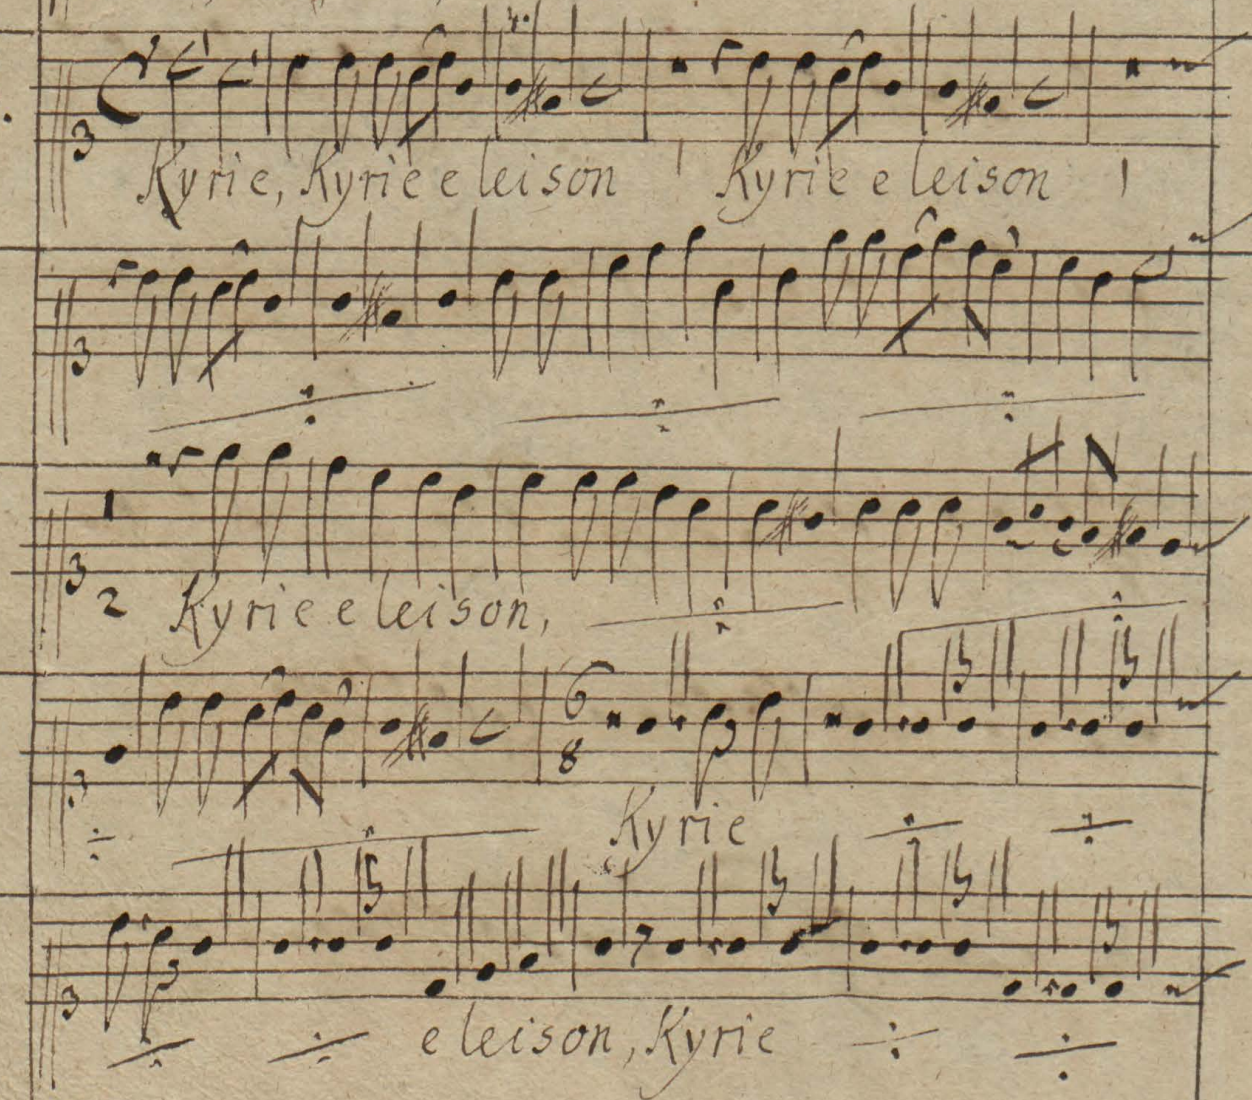 Kyrie, Kyrie eleison Kyrie eleison
2 Kyrie eleison,
6
8
Kyrie
eleison, Kyrie